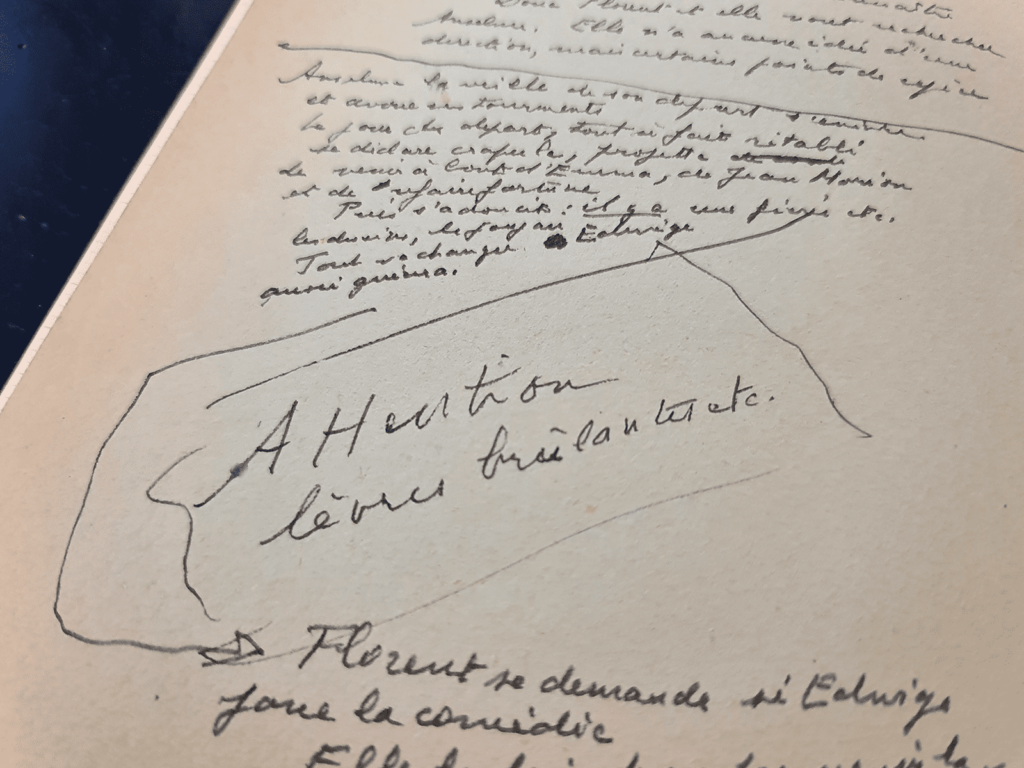 Donc Florent et elle vont rechercher
Anselme. Elle n'a aucune idée d'une
direction, mais certains points de repère
Anselme la veille de son départ s'enivre
et avoue ses tourments
Le jour du départ, tout à fait rétabli
se déclare crapule, projette
de venir à bout d'Emma, de Jean
et de refaire fortune
Puis s'adoucit : il y a une etc.
les dessins, le joyau Edwige
Tout va changer.
aussi guérira.
Attention
lèvres brûlantes etc.
Florent se demande si Edwige
joue la comédie
Elle